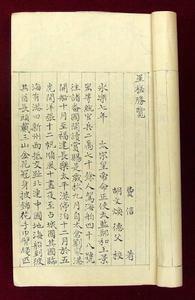 星槎勝覽
費信 著
胡文煥德父 校
永樂七年 太宗皇帝命正使太監鄭和王景
弘等統官兵二萬七千餘人駕海舶四十八號
往諸番國開讀賞賜是歲秋九月自太倉劉家港
開船十月至福建長樂太平港停泊十二月於五
虎開洋張十二帆順風十晝夜至占城國其國臨
海有港曰新州西抵交趾北連中國地海船到彼
其酋長頭戴三山金花冠身披錦花手巾臂腿